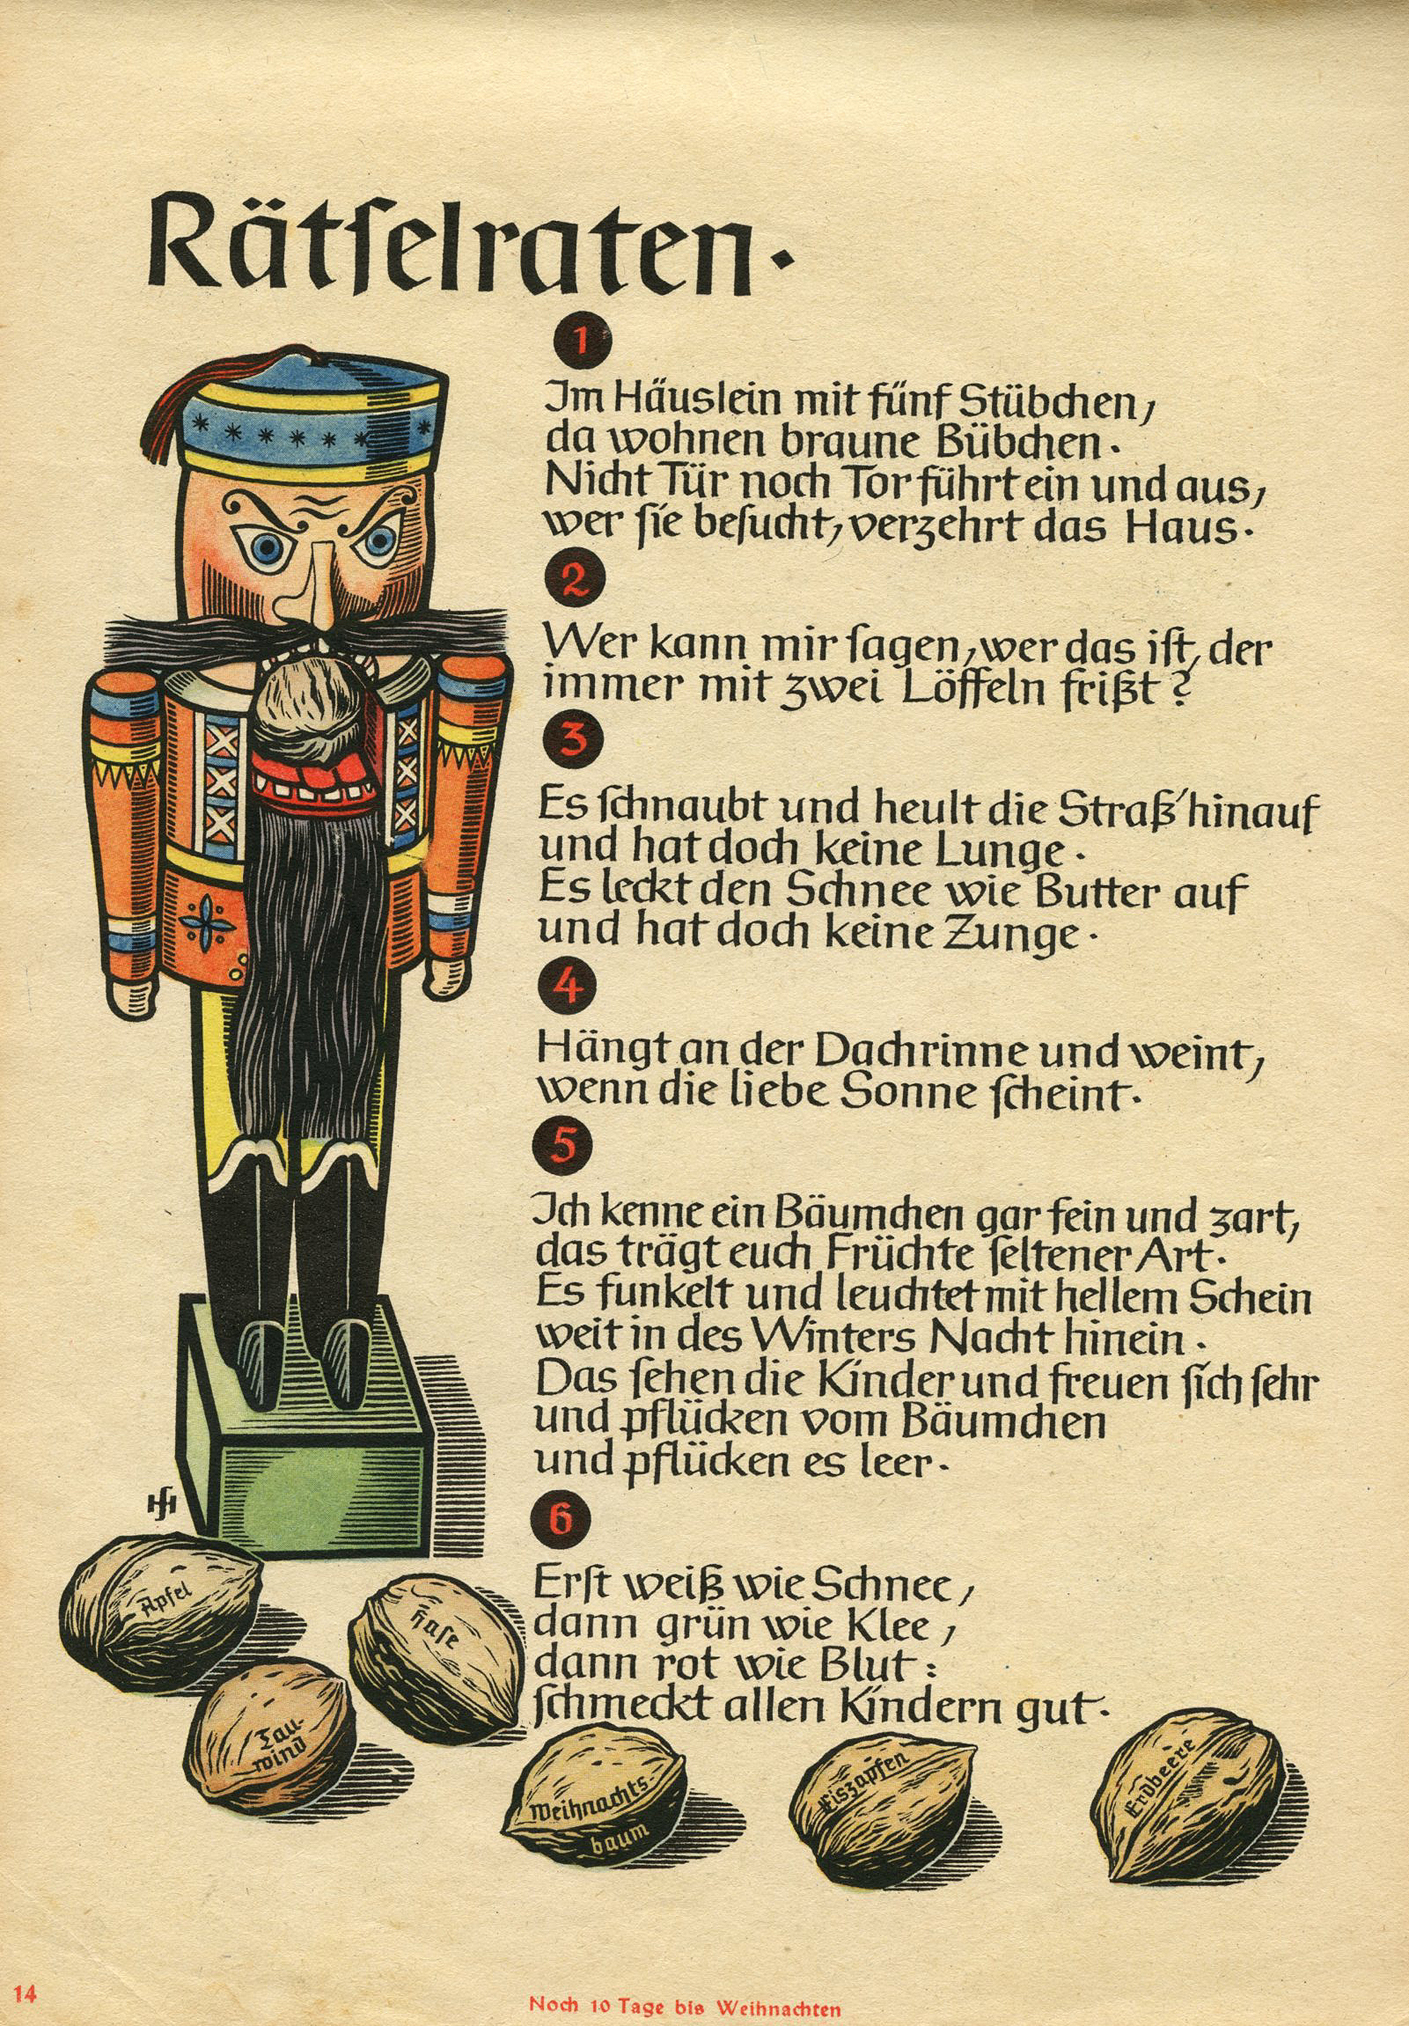 Rätſelraten.
1
Im Häuslein mit fünf Stübchen,
da wohnen braune Bübchen.
Nicht Tür noch Tor führt ein und aus,
wer ſie beſucht, verzehrt das Haus.
2
Wer kann mir ſagen, wer das iſt, der
immer mit zwei Löffeln frißt?
3
Es ſchnaubt und heult die Straß' hinauf
und hat doch keine Lunge.
Es leckt den Schnee wie Butter auf
und hat doch keine Zunge.
4
Hängt an der Dachrinne und weint,
wenn die liebe Sonne ſcheint.
5
Ich kenne ein Bäumchen gar fein und zart,
das trägt euch Früchte ſeltener Art.
Es funkelt und leuchtet mit hellem Schein
weit in des Winters Nacht hinein.
Das ſehen die Kinder und freuen ſich ſehr
und pflücken vom Bäumchen
und pflücken es leer.
6
Erſt weiß wie Schnee,
dann grün wie Klee,
dann rot wie Blut:
ſchmeckt allen Kindern gut.
HS
Apfel
Haſe
Tau-
wind
Weihnachts-
baum
Eiszapfen
Erdbeere
14
Noch 10 Tage bis Weihnachten